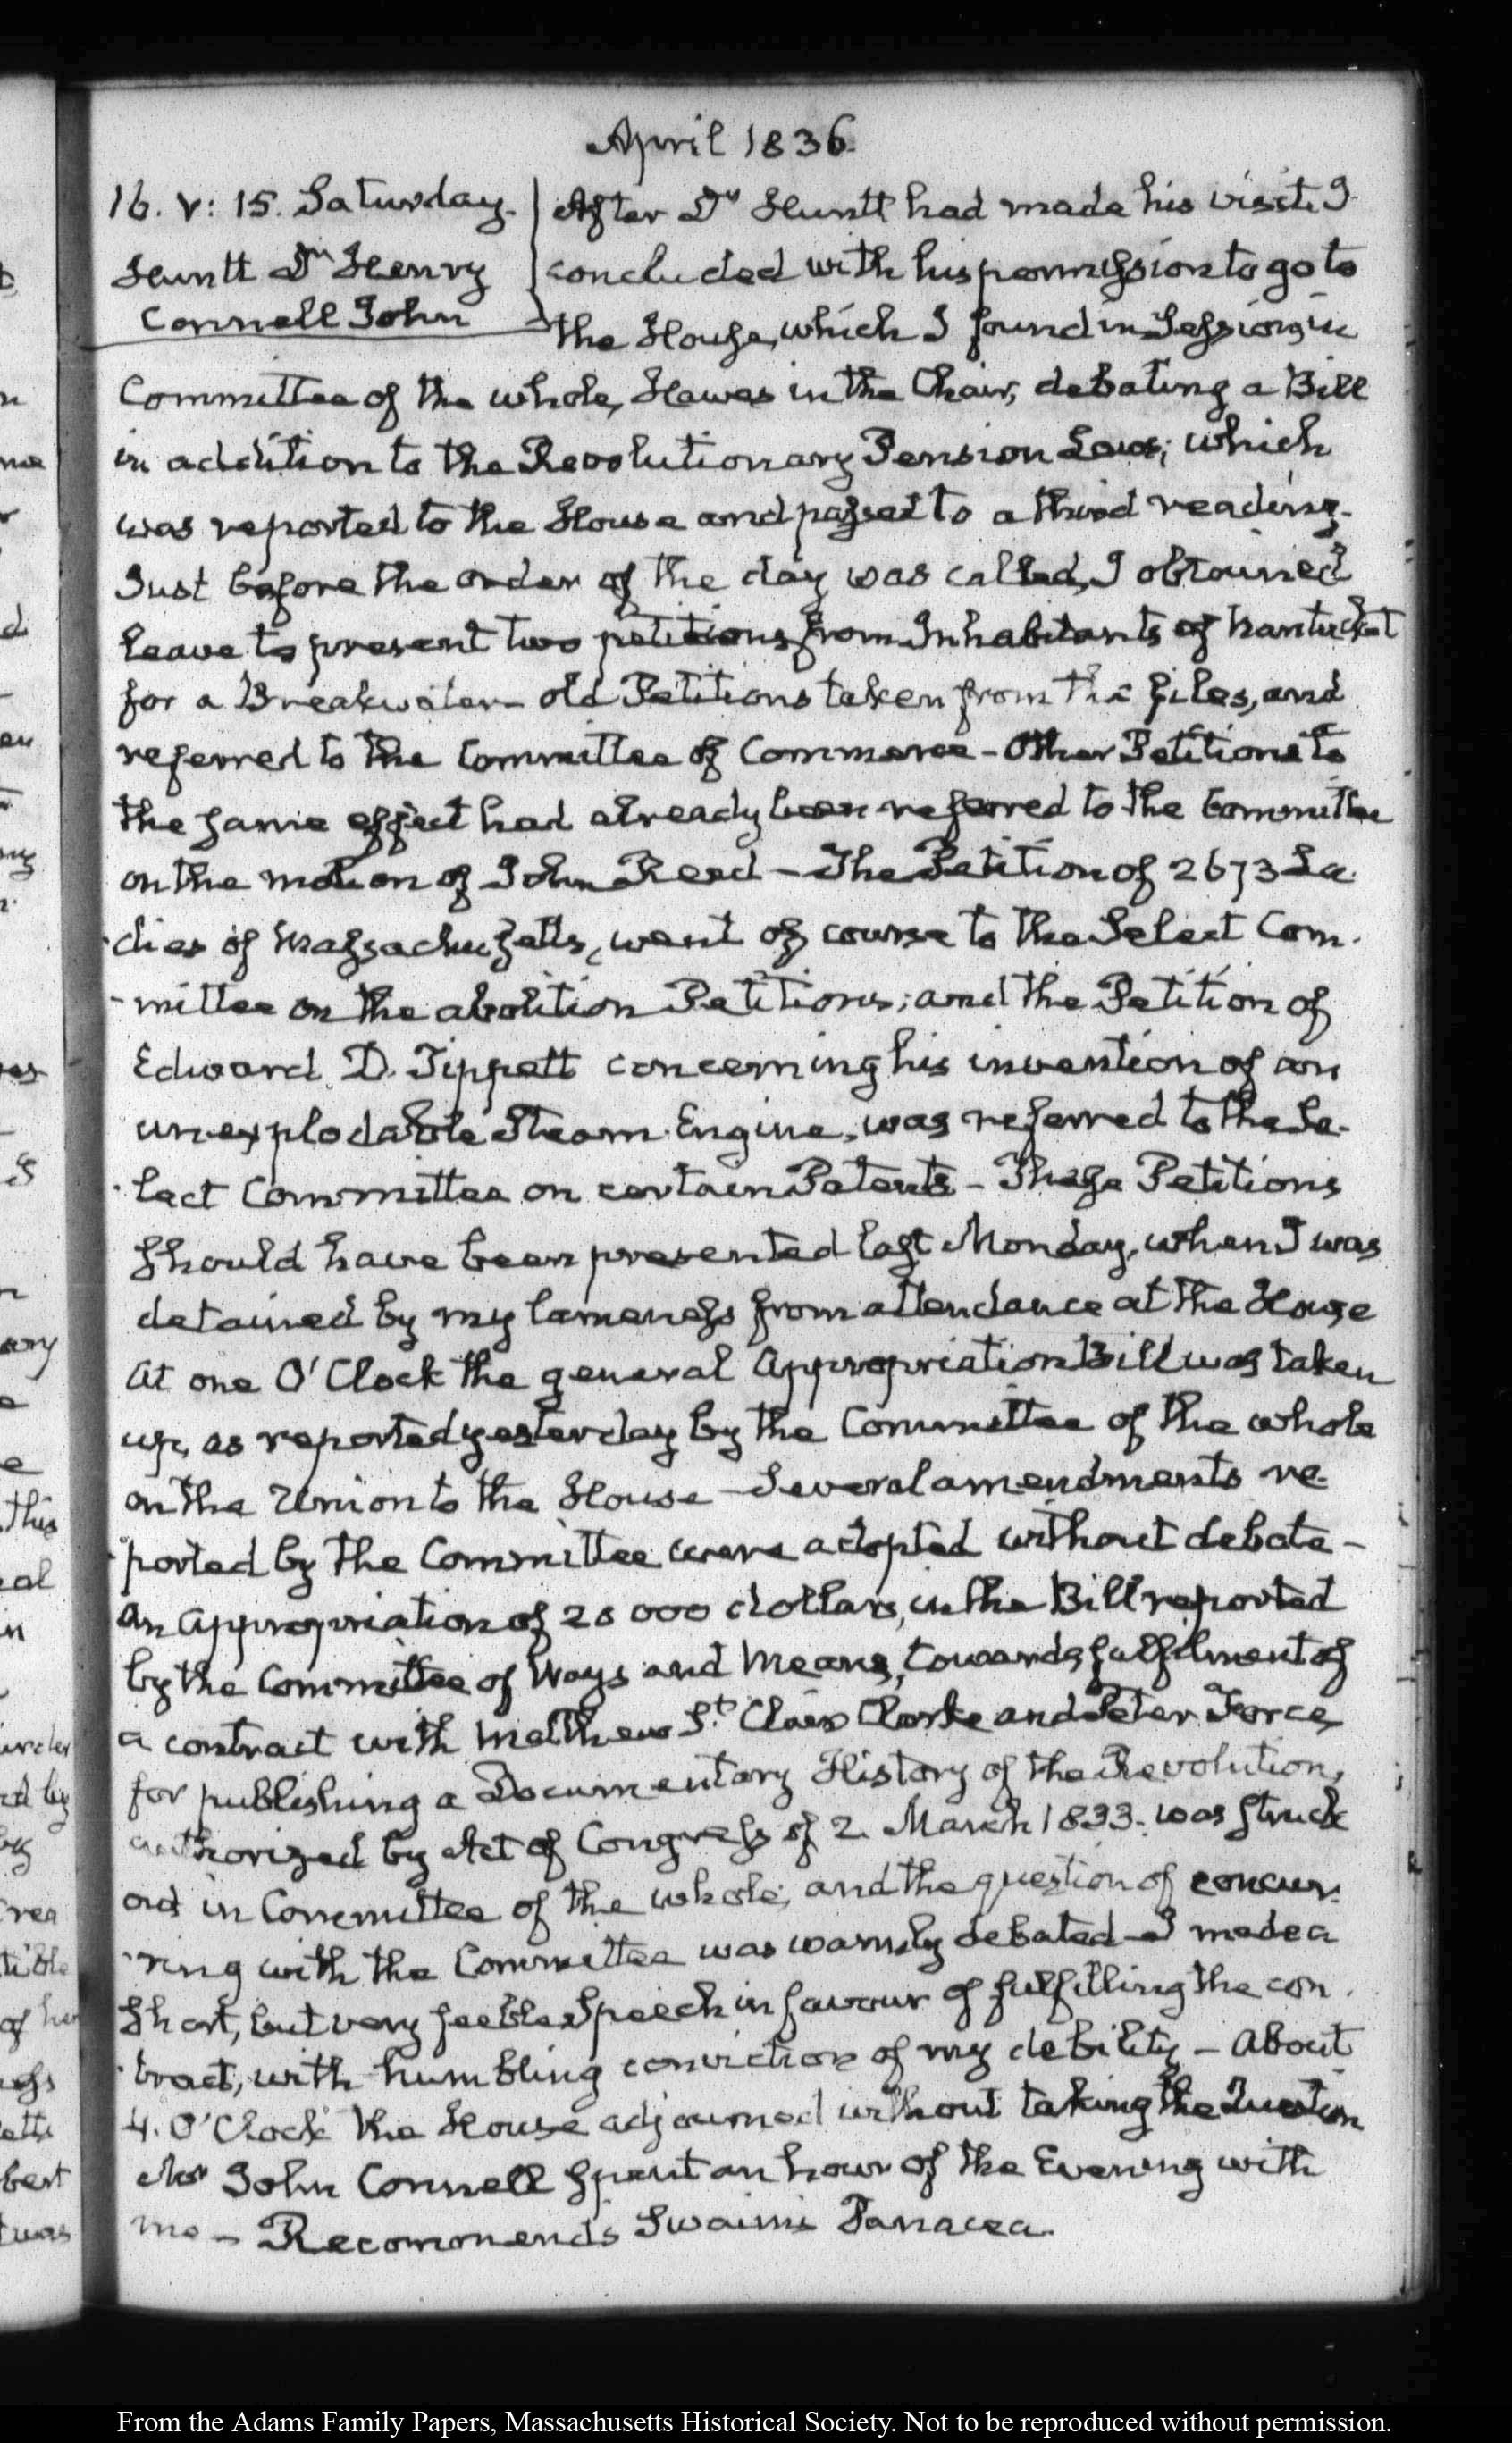 April 1836.
16. V: 15. Saturday.
Huntt Dr Henry
Connell John
After Dr Huntt had made his visit I
concluded with his permission to go to
the House, which I found in Session, in
Committee of the whole, Hawes in the Chair, debating a Bill
in addition to the Revolutionary Pension Laws; which
was reported to the House and passed to a third reading.
Just before the order of the day was called, I obtained
leave to present two petitions from Inhabitants of Nantucket
for a Breakwater - old Petitions taken from the files, and
referred to the Committee of Commerce - Other Petitions to
the same effect had already been referred to the Committee
on the motion of John Reed - The Petition of 2673 La
dies of Massachusetts, went of course to the Select Com-
-mittee on the abolition Petitions; and the Petition of
Edward D. Tippett concerning his invention of an
unexplodable Steam-Engine, was referred to the Se-
-lect Committee on certain Patents - These Petitions
should have been presented last Monday, when I was
detained by my lameness from attendance at the House
At one O'Clock the general Appropriation Bill was taken
up, as reported yesterday by the Committee of the whole
on the Union to the House - Several amendments re-
-ported by the Committee were adopted without debate -
An Appropriation of 20 000 dollars, in the Bill reported
by the Committee of Ways and Means, towards fulfilment of
a contract with Matthew St. Clair Clarke and Peter Force,
for publishing a Documentary History of the Revolution,
authorized by Act of Congress of 2. March 1833. was struck
out in Committee of the whole; and the question of concur-
-ring with the Committee was warmly debated - I made a
short, but very feeble Speech in favour of fulfilling the con-
-tract, with humbling conviction of my debility - About
4. O'Clock the House adjourned without taking the Question
Mr John Connell spent an hour of the Evening with
me - Recommends Swaim's Panacea.
From the Adams Family Papers, Massachusetts Historical Society. Not to be reproduced without permission.